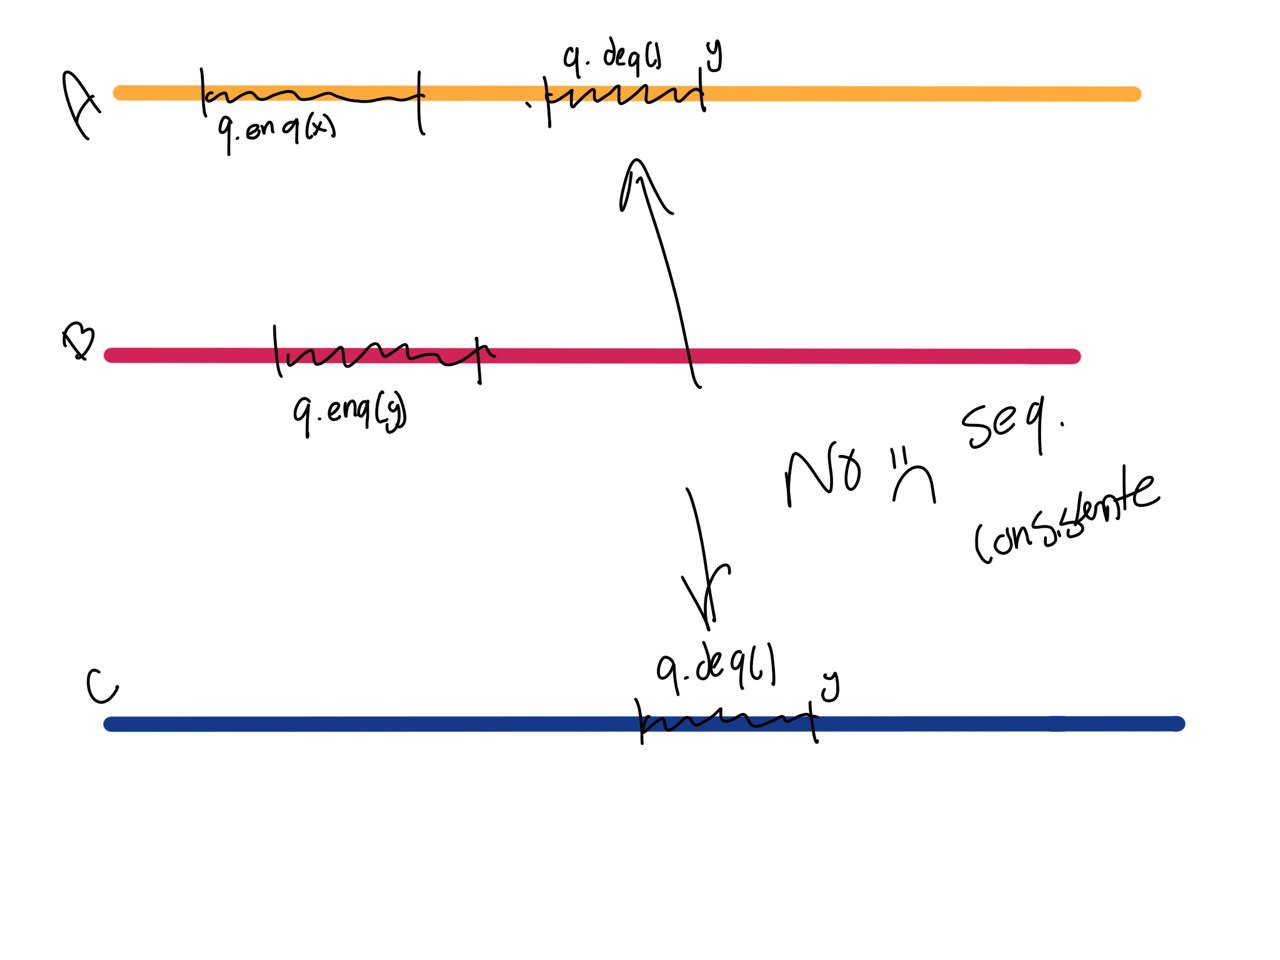 A
q.enq(x)
q.deq() y
B
q.enq(y)
No :( seq.
consistente
C
q.deq() y